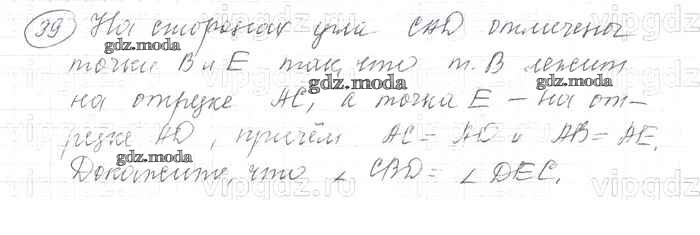 39 На сторонах угла CAD отмечены
точки B и E так, что т. B лежит
на отрезке AC, а точка E – на от-
резке AD, причём AC = AD и AB = AE.
Докажите, что ∠ CBD = ∠ DEC.
gdz.moda
gdz.moda
gdz.moda
gdz.moda
gdz.moda
vipgdz
vipgdz
vipgdz